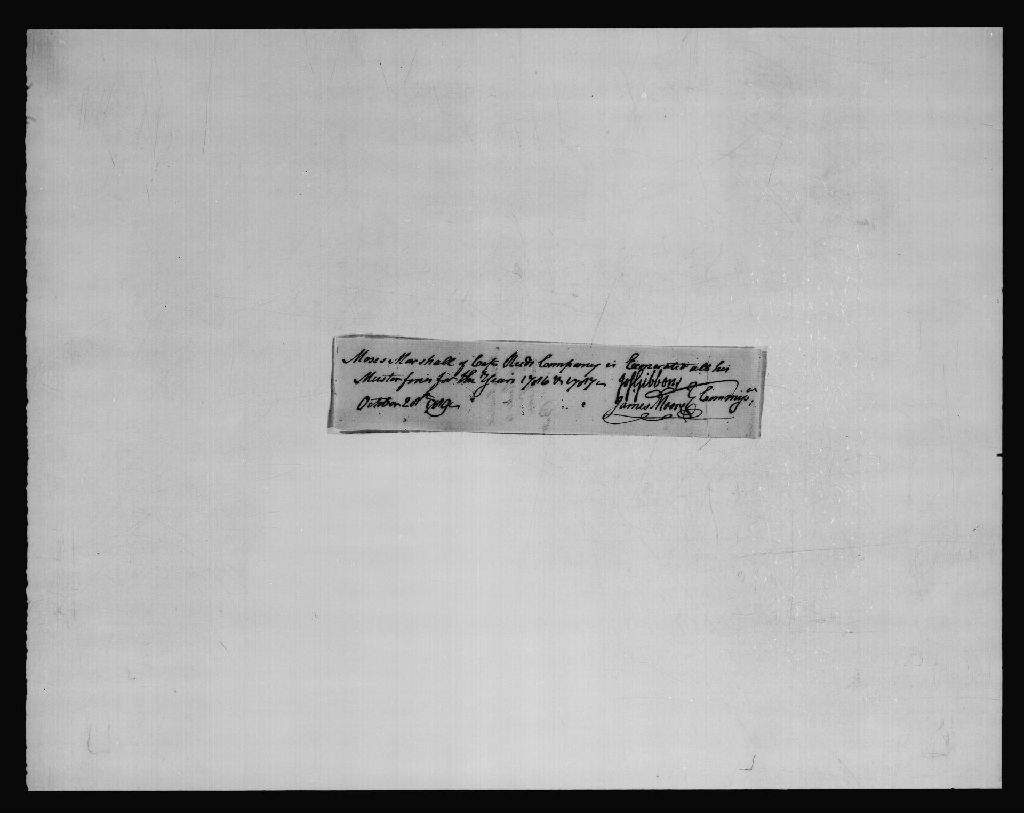 Moses Marshall of Capt. Reeds Company is Exonerated all his
Muster fines for the Years 1786 & 1787
Js. Gibbons
October 28th 1789
James Moore Commiss.rs